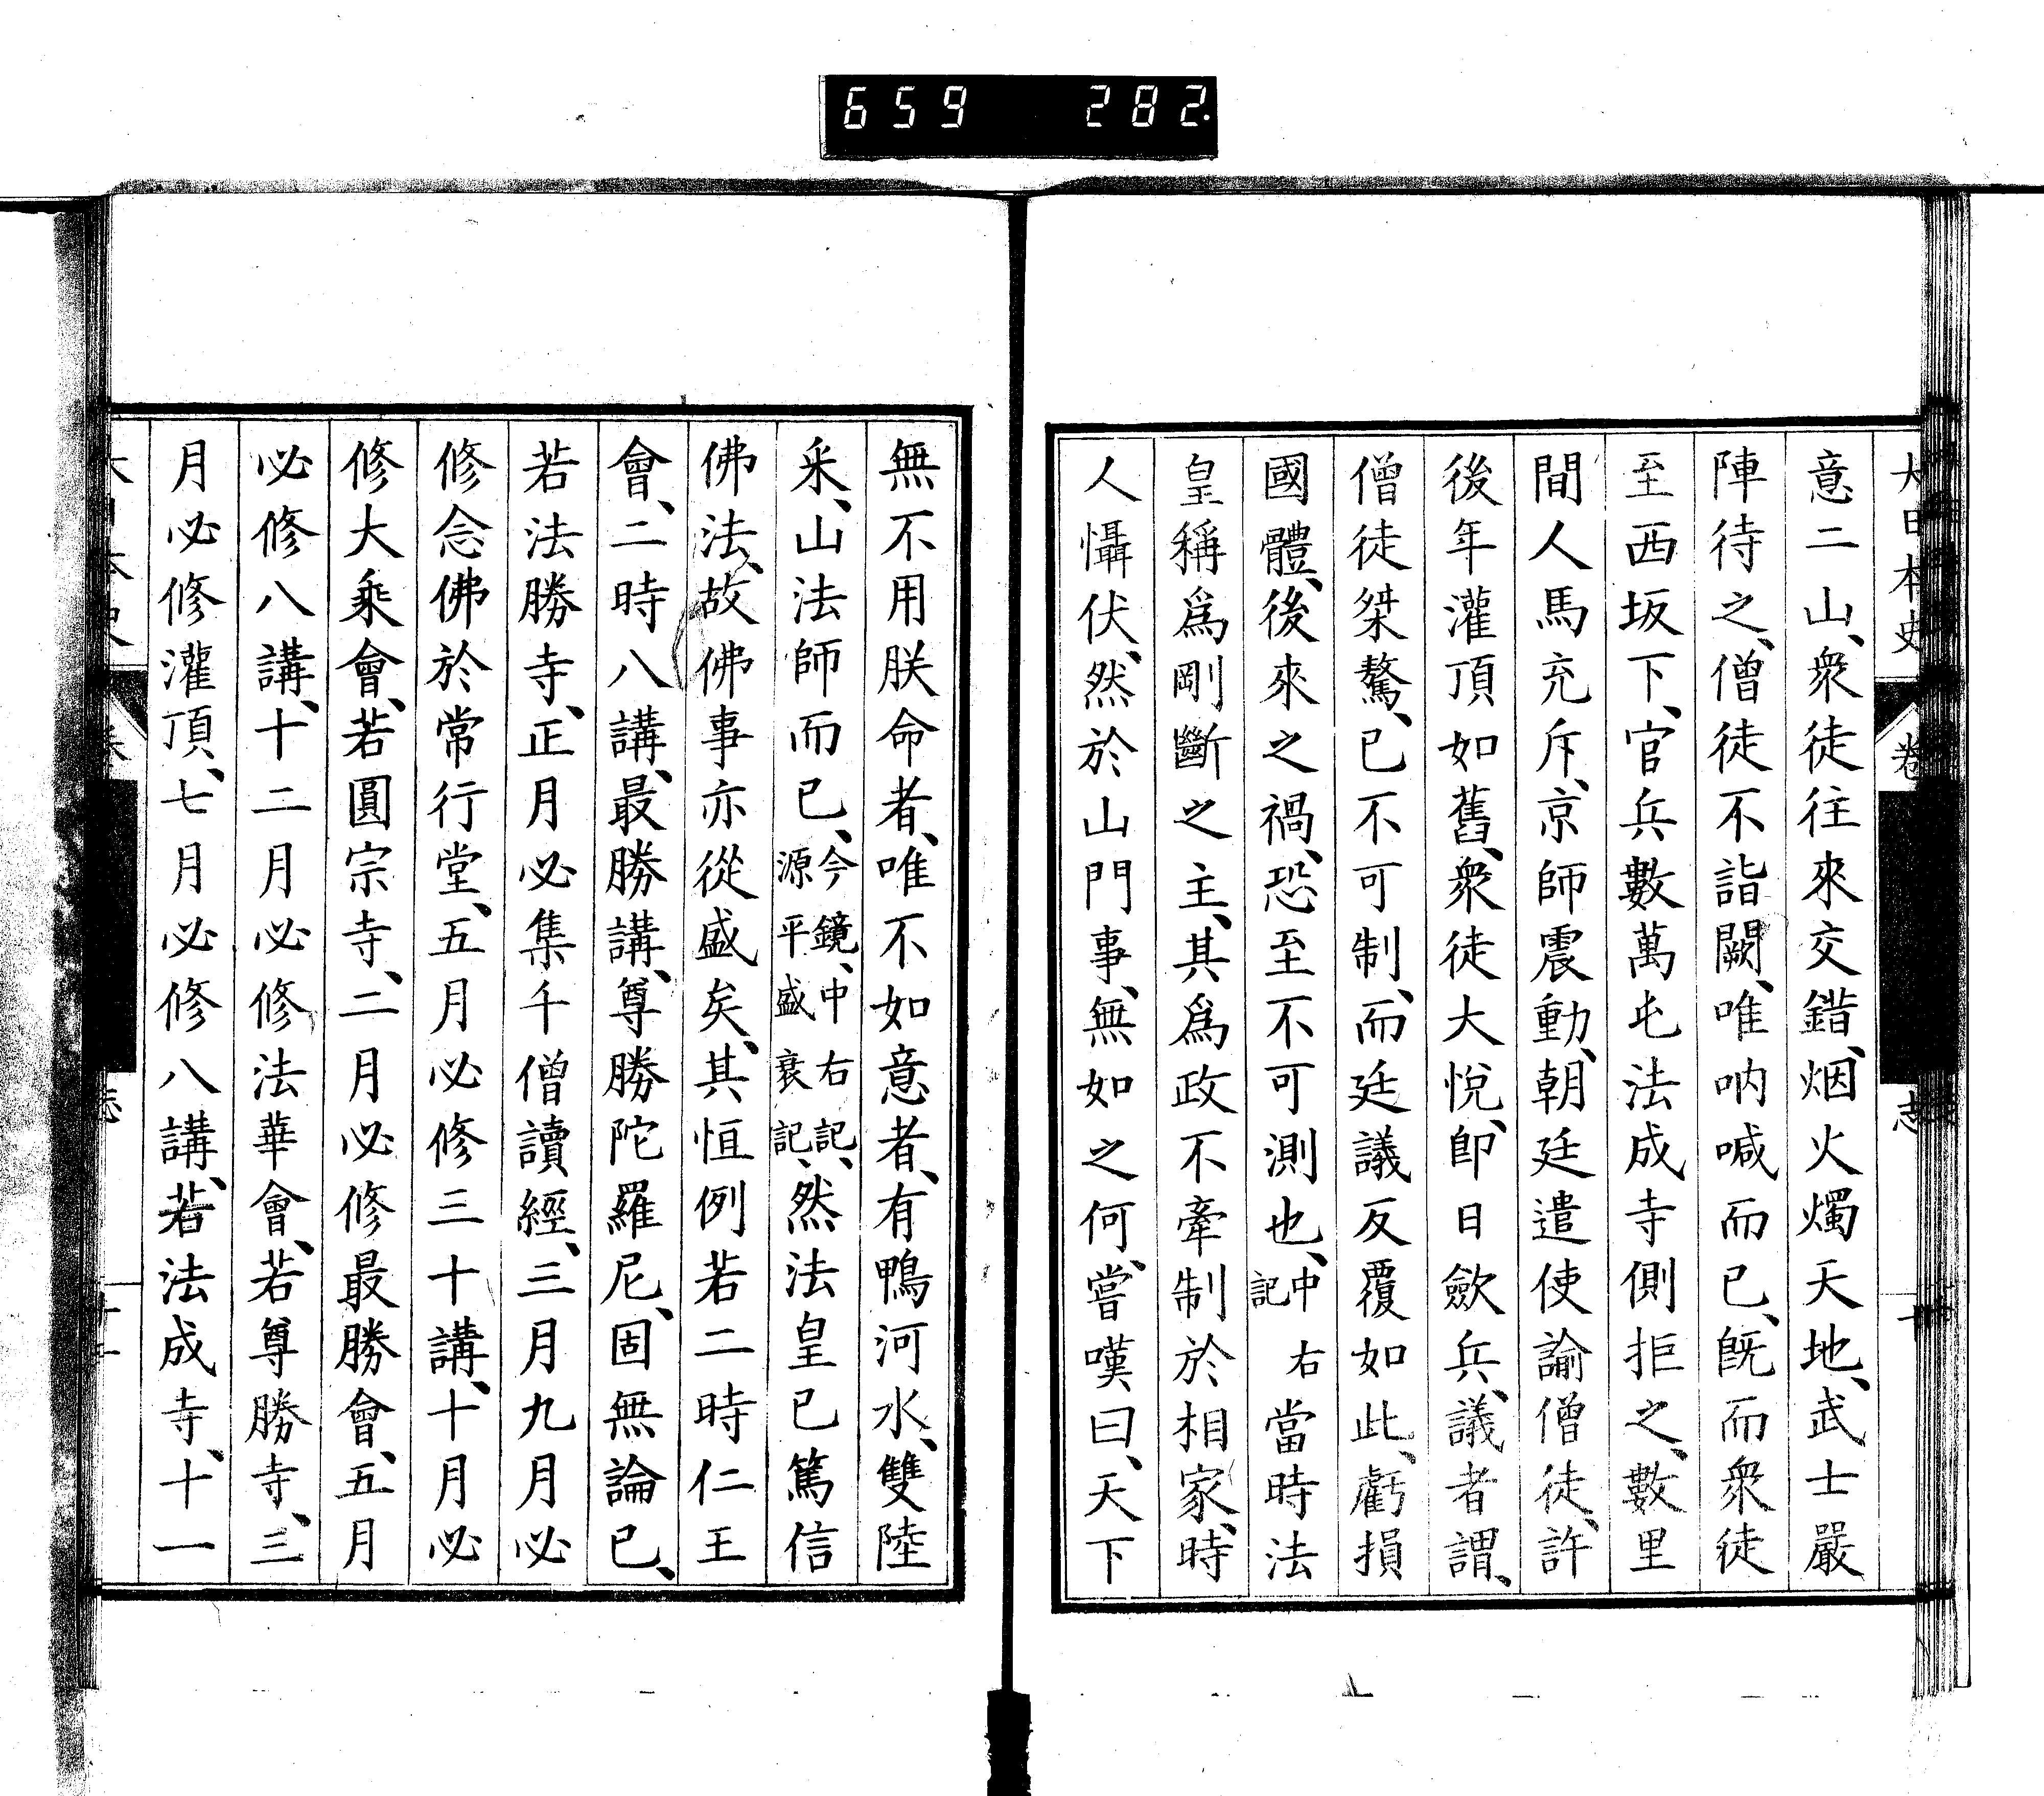 659 282.
大日本史 卷 志
意二山、衆徒往來交錯、烟火燭天地、武士嚴
陣待之、僧徒不詣闕、唯吶喊而已、旣而衆徒
至西坂下、官兵數萬屯法成寺側拒之、數里
間人馬充斥、京師震動、朝廷遣使諭僧徒、許
後年灌頂如舊、衆徒大悅、卽日歛兵、議者謂、
僧徒桀驁、已不可制、而廷議反覆如此、虧損
國體、後來之禍、恐至不可測也、中右記當時法
皇稱爲剛斷之主、其爲政不牽制於相家、時
人懾伏、然於山門事、無如之何、嘗嘆曰、天下
無不用朕命者、唯不如意者、有鴨河水、雙陸
采、山法師而已、今鏡、中右記、源平盛衰記、然法皇已篤信
佛法、故佛事亦從盛矣、其恒例若二時仁王
會、二時八講、最勝講、尊勝陀羅尼、固無論已、
若法勝寺、正月必集千僧讀經、三月九月必
修念佛於常行堂、五月必修三十講、十月必
修大乘會、若圓宗寺、二月必修最勝會、五月
必修八講、十二月必修法華會、若尊勝寺、三
月必修灌頂、七月必修八講、若法成寺、十一